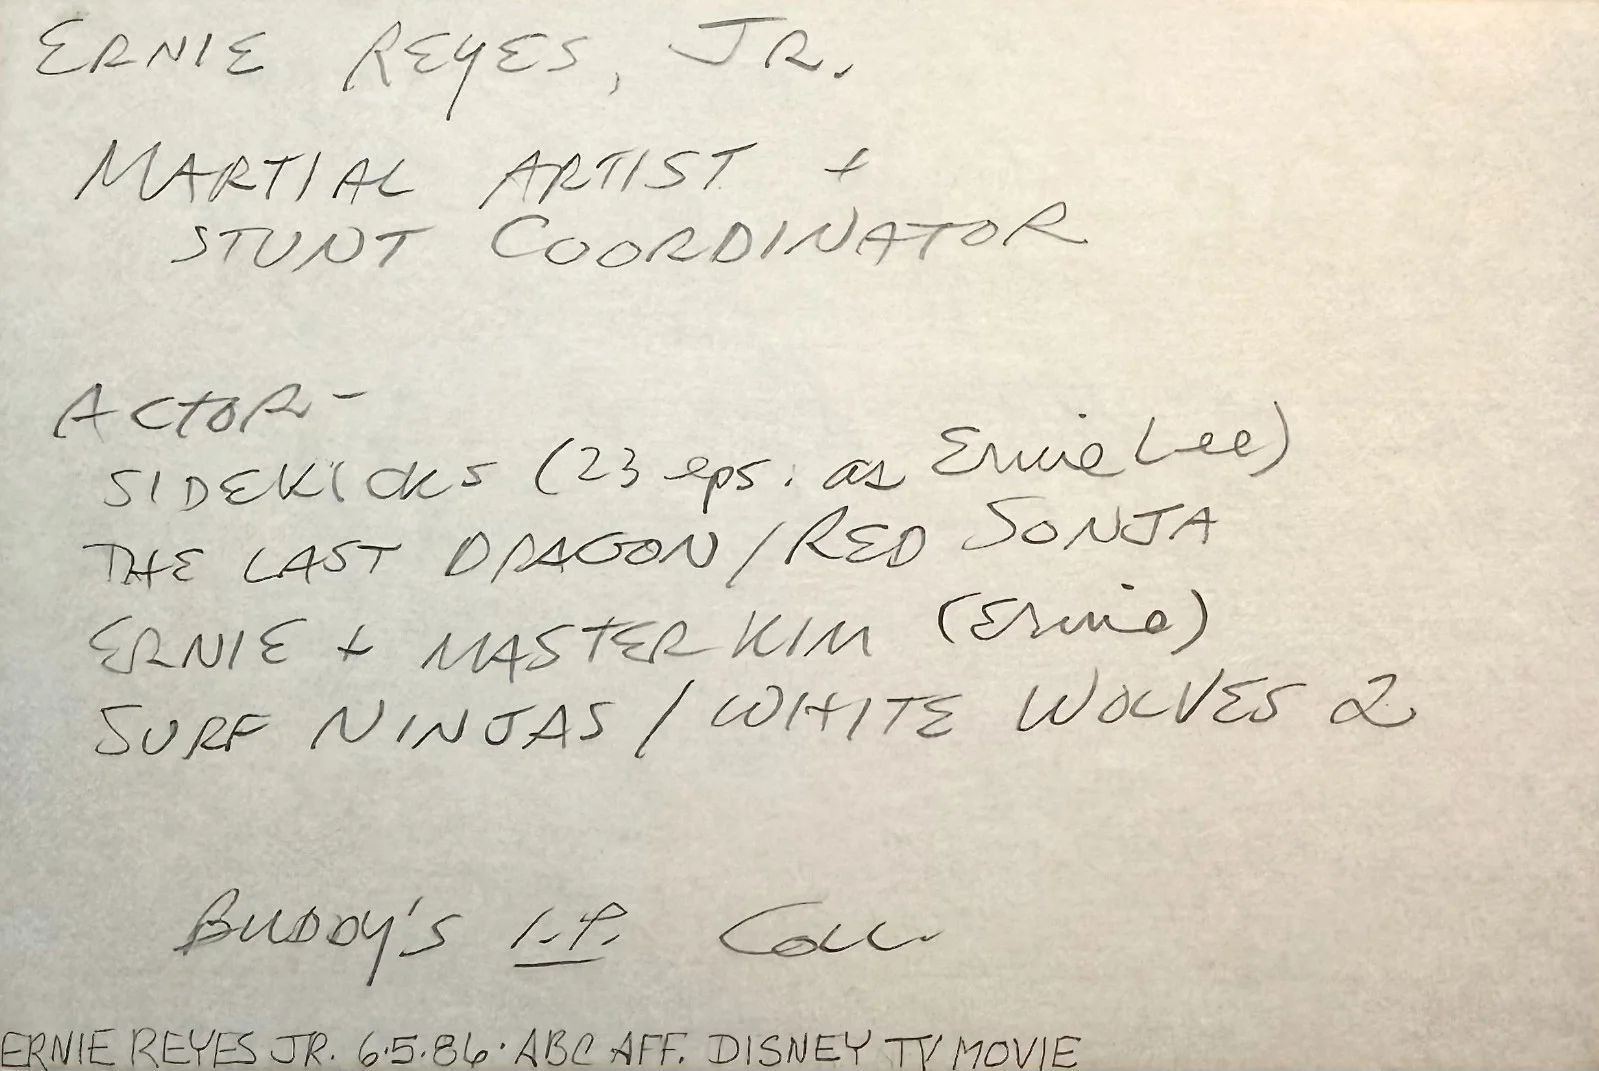 ERNIE REYES, JR.
MARTIAL ARTIST +
STUNT COORDINATOR
ACTOR-
SIDEKICKS (23 eps. as Ernie Lee)
THE LAST DRAGON/RED SONJA
ERNIE + MASTER KIM (Ernie)
SURF NINJAS / WHITE WOLVES 2
BUDDY'S I.P. COLL.
ERNIE REYES JR. 6·5·86· ABC AFF. DISNEY TV MOVIE